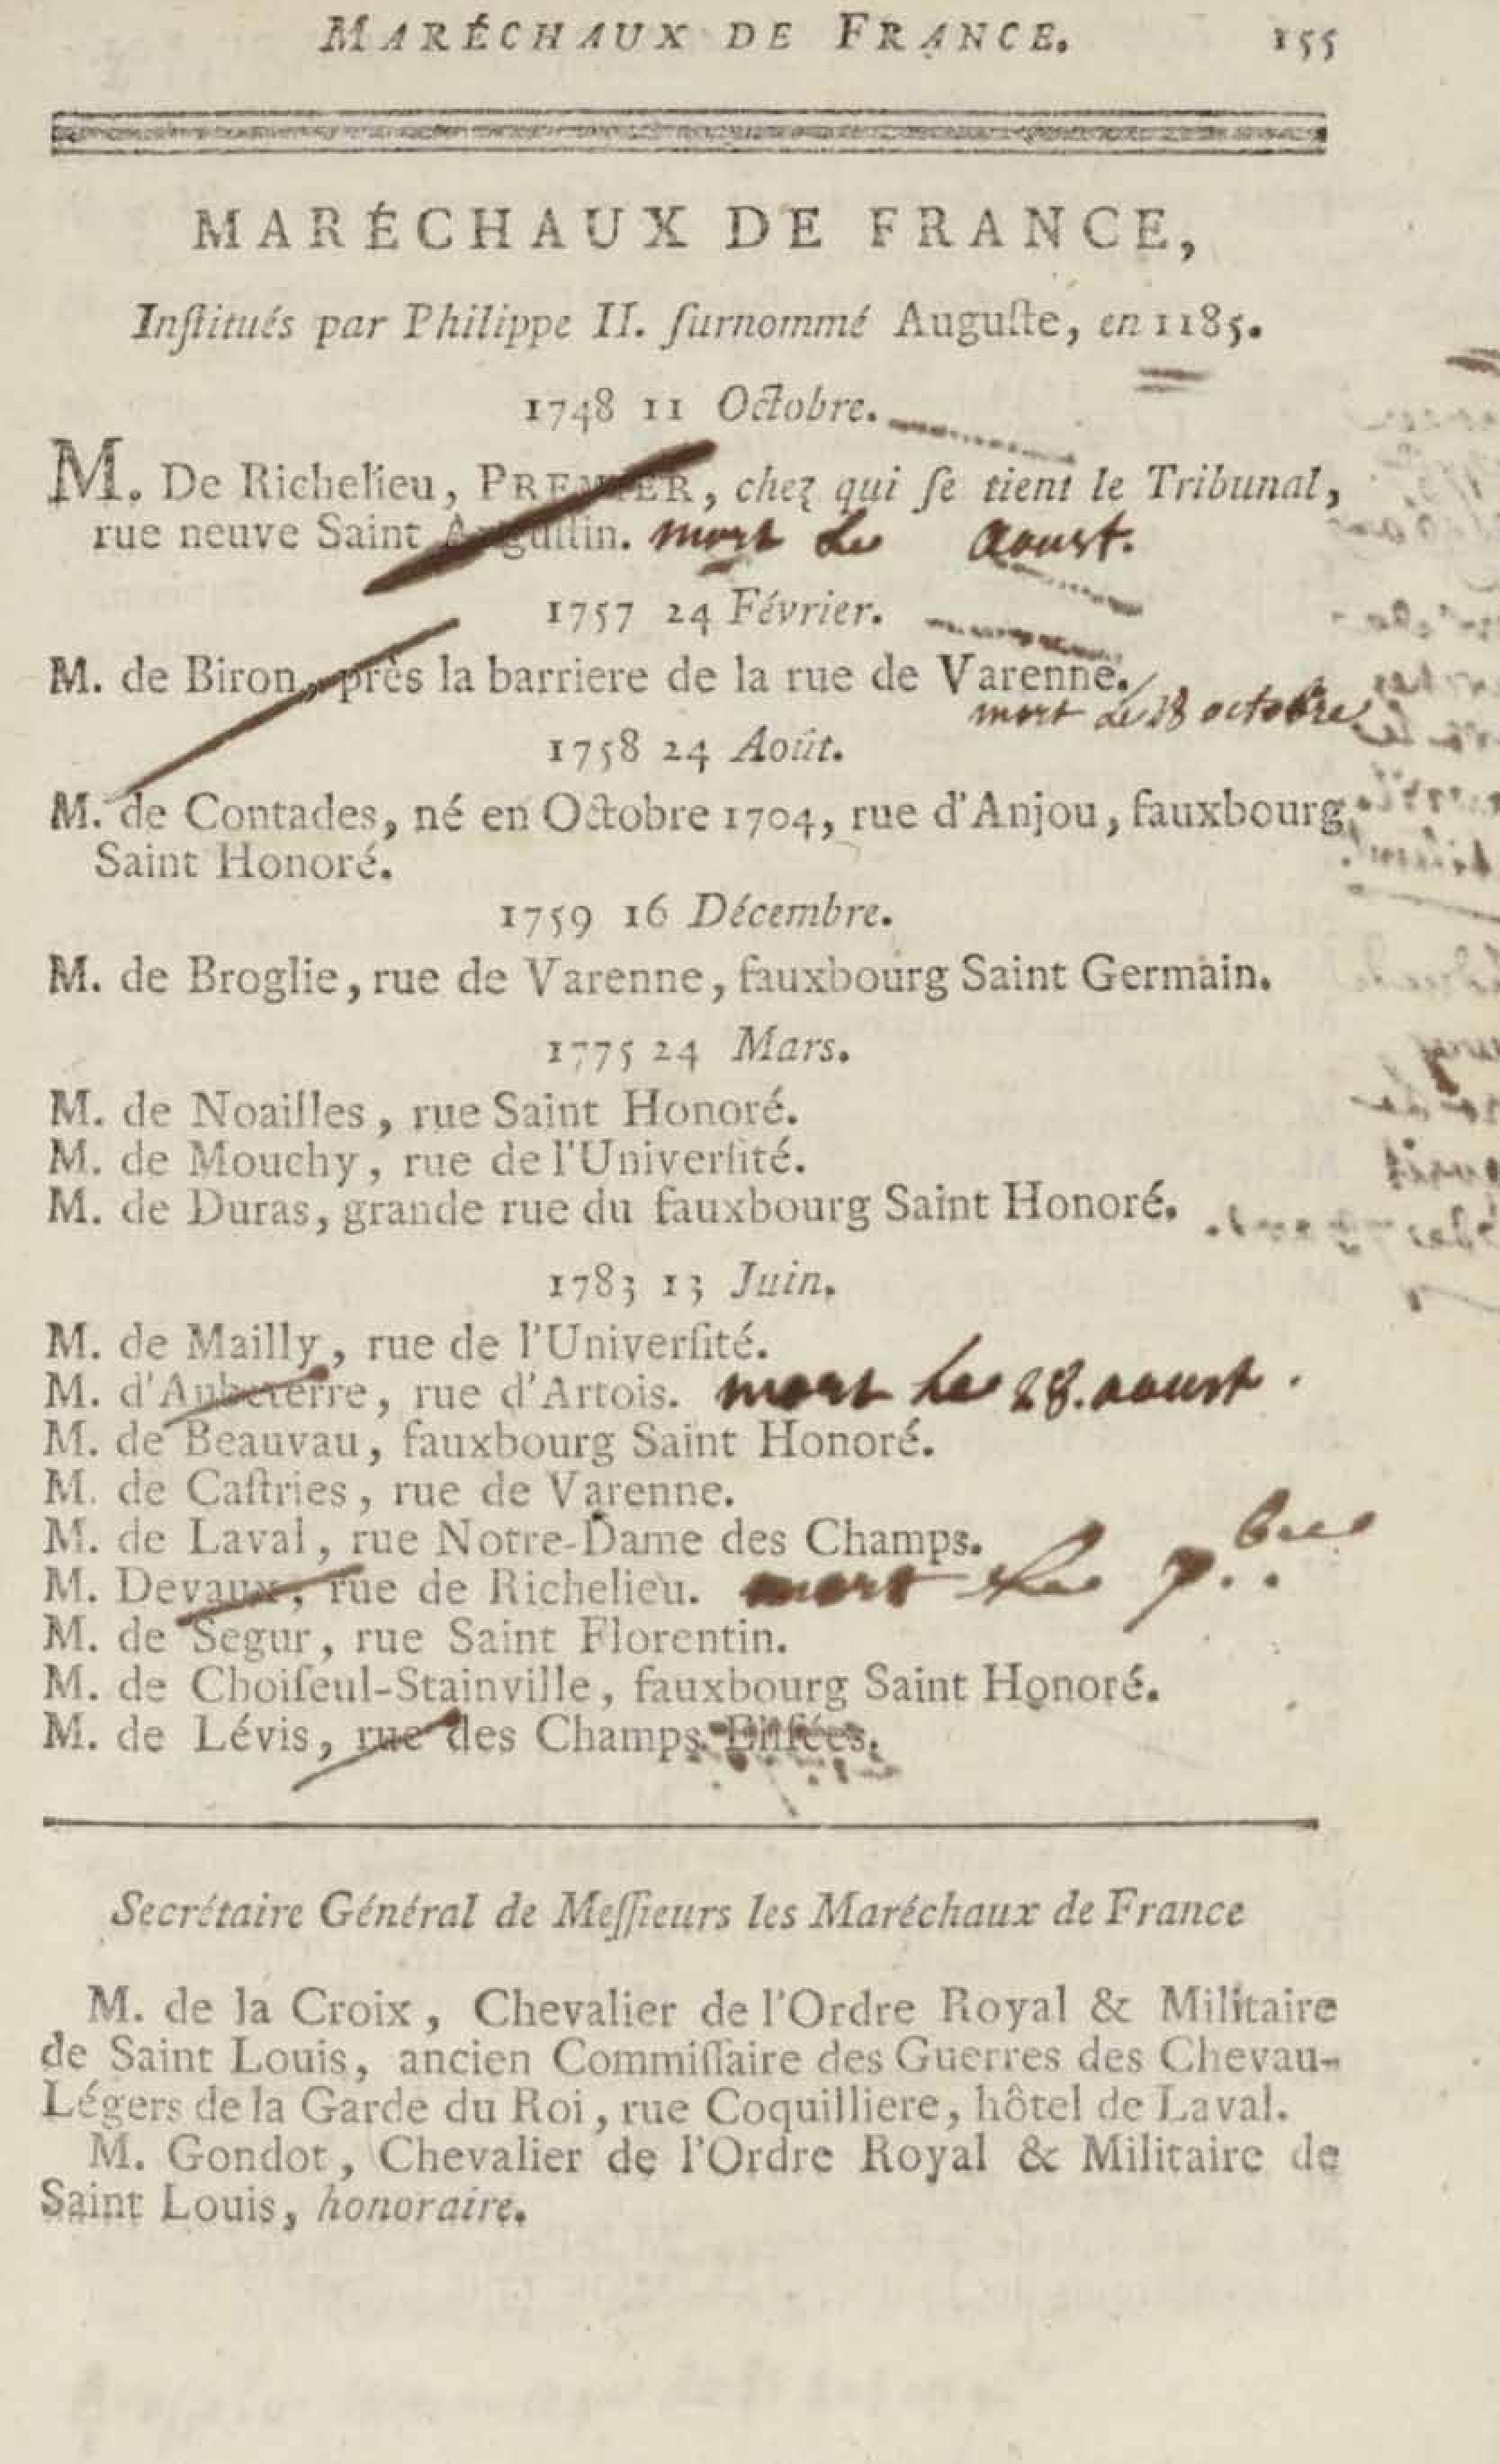 MARÉCHAUX DE FRANCE. 155
MARÉCHAUX DE FRANCE,
Inſtitués par Philippe II. ſurnommé Auguſte, en 1185.
1748 11 Octobre.
M. De Richelieu, PREMIER, chez qui ſe tient le Tribunal,
rue neuve Saint Auguſtin. mort Le aoust.
1757 24 Février.
M. de Biron, près la barriere de la rue de Varenne.
mort Le 28 octobre
1758 24 Août.
M. de Contades, né en Octobre 1704, rue d'Anjou, fauxbourg
Saint Honoré.
1759 16 Décembre.
M. de Broglie, rue de Varenne, fauxbourg Saint Germain.
1775 24 Mars.
M. de Noailles, rue Saint Honoré.
M. de Mouchy, rue de l'Univerſité.
M. de Duras, grande rue du fauxbourg Saint Honoré.
1783 13 Juin.
M. de Mailly, rue de l'Univerſité.
M. d'Aubeterre, rue d'Artois. mort Le 28. aoust.
M. de Beauvau, fauxbourg Saint Honoré.
M. de Caſtries, rue de Varenne.
M. de Laval, rue Notre-Dame des Champs.
M. Devaux, rue de Richelieu. mort Le 7.bre
M. de Segur, rue Saint Florentin.
M. de Choiſeul-Stainville, fauxbourg Saint Honoré.
M. de Lévis, rue des Champs Eliſées.
Secrétaire Général de Meſſieurs les Maréchaux de France
M. de la Croix, Chevalier de l'Ordre Royal & Militaire
de Saint Louis, ancien Commiſſaire des Guerres des Chevau-
Légers de la Garde du Roi, rue Coquilliere, hôtel de Laval.
M. Gondot, Chevalier de l'Ordre Royal & Militaire de
Saint Louis, honoraire.